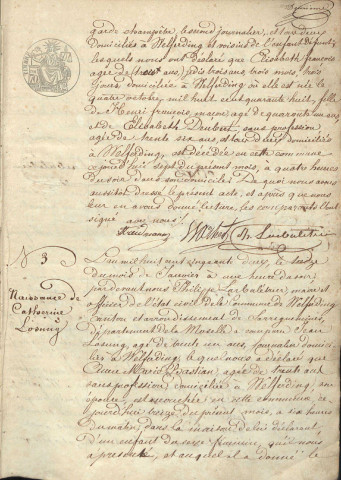 garde champêtre, le second journalier, et tous deux
domiciliés à Welferding et voisins de l'enfant défunt,
lesquels nous ont déclaré que Elisabeth françois
agée de trois ans, trois mois, trois
jours domiciliée à Welferding où elle est née le
quatre octobre, mil huit cent quarante huit, fille
de Henri françois, maçon, agé de quarante un ans,
et de Elisabeth Daubert, sans profession
agée de trente six ans, et tous deux domiciliés
à Welferding, est décédée en cette commune
le jourd'hui sept du présent mois, à quatre heures
du soir dans son domicile. De quoi nous avons
aussitôt dressé le présent acte, et après que nous
leur en avons donné lecture, les comparants l'ont
signé avec nous.
N° 3
Naissance de
Catherine
Losung
L'an mil huit cent cinquante deux, le treize
du mois de Janvier à une heure du soir
pardevant nous Philippe maire et
officier de l'état civil de la commune de Welferding
canton et arrondissement de Sarreguemines
département de la Moselle a comparu Jean
Losung, agé de trente ans, journalier domicilié
à Welferding, lequel nous a déclaré que
Anne Marie Sébastian, agée de trente ans
sans profession domiciliée à Welferding, son
épouse, est accouchée en cette commune ce
jourd'hui treize du présent mois, à six heures
du matin, dans la maison de lui déclarant,
d'un enfant du sexe féminin, qu'il nous
a présenté, et auquel il a donné le